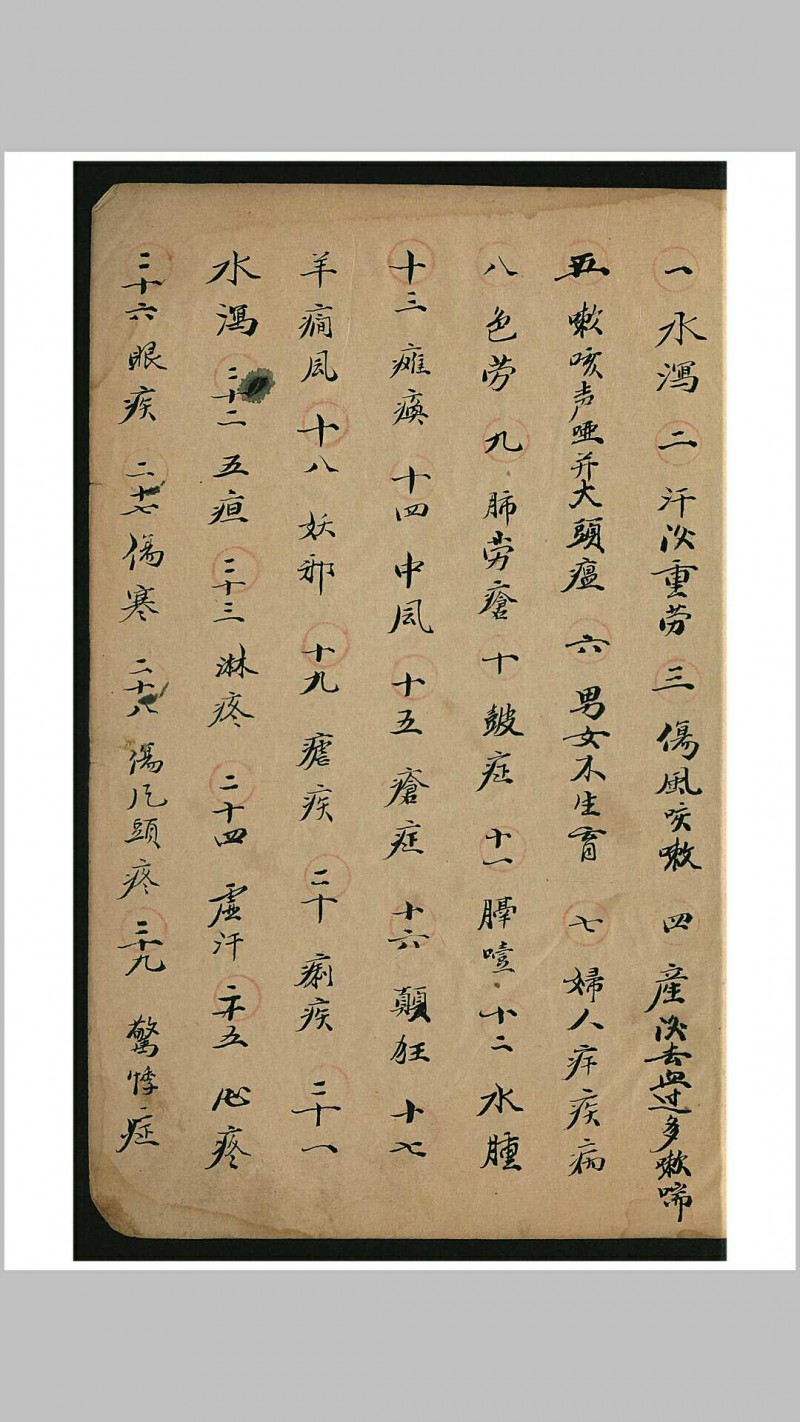 一水瀉二汗淡重劳三傷風咳嗽四產淡去血过多嗽喘
五嗽咳声哑并大頭瘟六男女不生育七婦人疥疾病
八色劳九肺劳瘡十皷症十一膈噎十二水腫
十三癱瘓十四中風十五瘡症十六顛狂十七
羊癎風十八妖邪十九瘧疾二十痢疾二十一
水瀉二十二五疸二十三淋疼二十四虛汗二十五心疼
二十六眼疾二十七傷寒二十八傷風頭疼二十九驚悸症